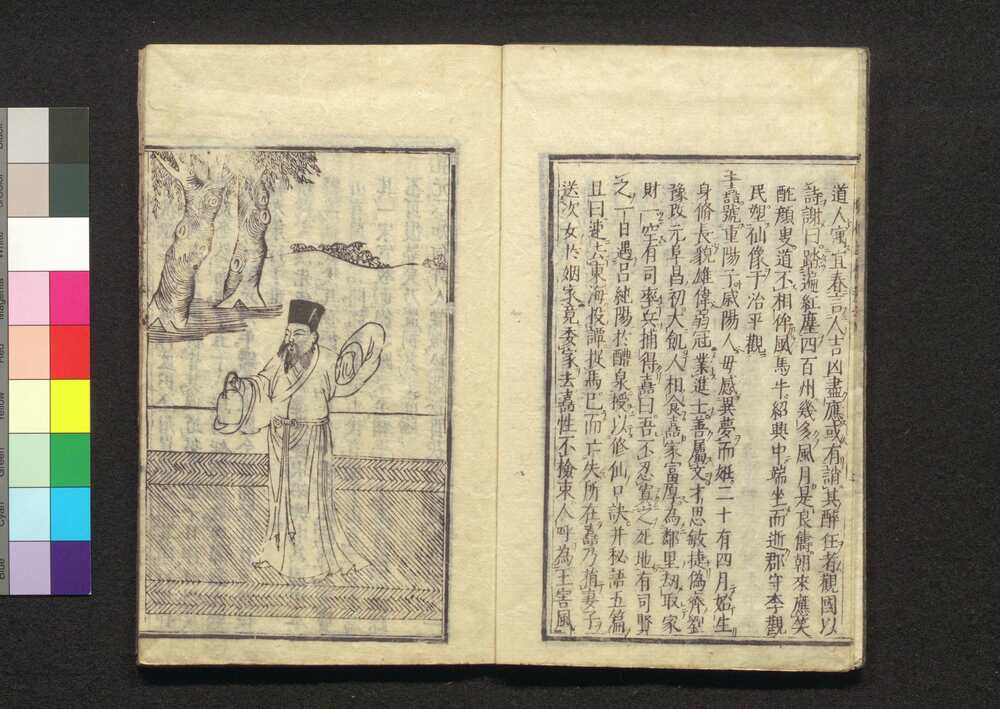 道人寓宜春言人吉凶盡應或有誚其醉任者觀國以
詩謝曰踏遍紅塵四百州幾多風月是良儔朝來應笑
酡顏叟道不相侔風馬牛紹興中端坐而逝郡守李觀
民塑仙像于治平觀
王嚞號重陽子咸陽人母感異夢而姙二十有四月始生
身脩長貌雄偉弱冠業進士善屬文才思敏捷偽齊劉
豫改元阜昌初大飢人相食嚞家富厚為鄰里刼取家
財一空有司率兵捕得嚞曰吾不忍寘之死地有司賢
之一日遇呂純陽於醴泉授以修仙口訣并秘語五篇
且曰速去東海投譚捉馬已而亡失所在嚞乃捐妻子
送次女於姻家竟委家去嚞性不檢束人呼為王害風
White
Magenta
Red
Yellow
Green
Cyan
Blue